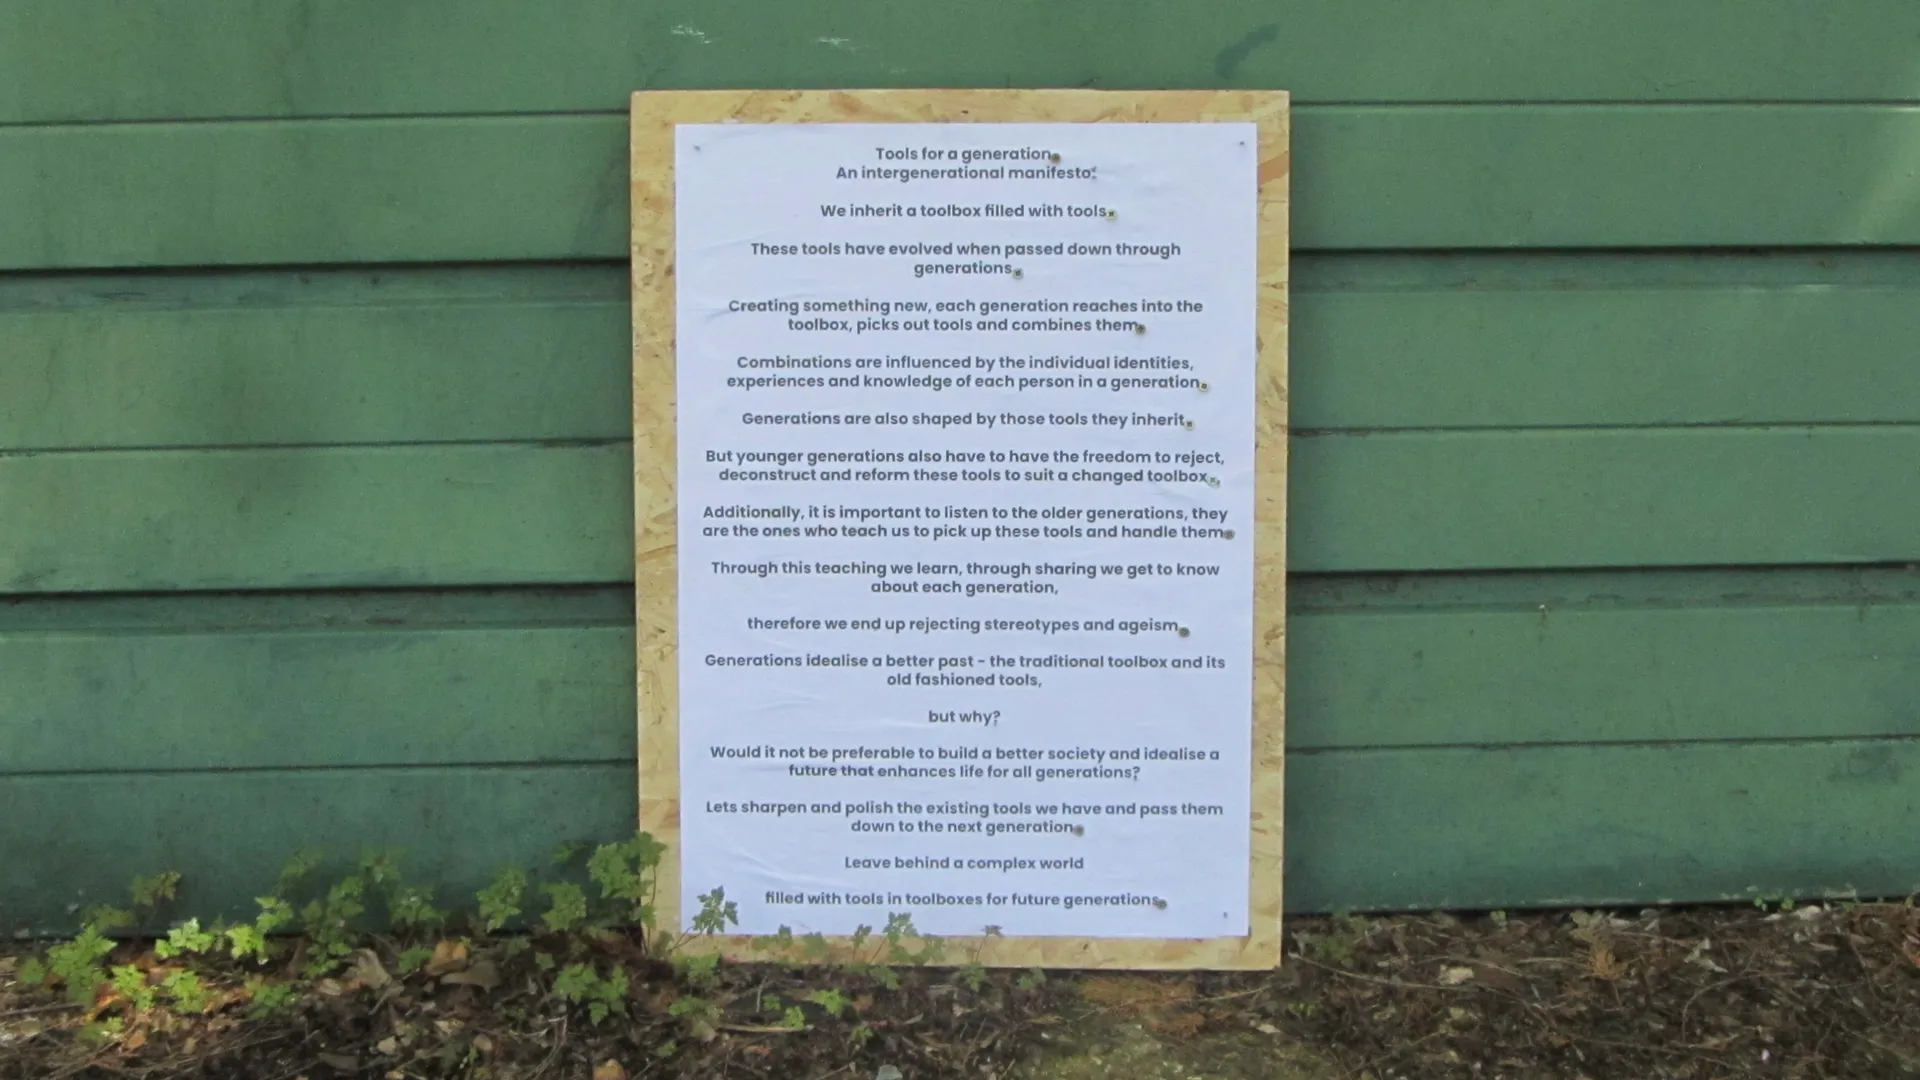 Tools for a generation.
An intergenerational manifesto:
We inherit a toolbox filled with tools.
These tools have evolved when passed down through
generations.
Creating something new, each generation reaches into the
toolbox, picks out tools and combines them.
Combinations are influenced by the individual identities,
experiences and knowledge of each person in a generation.
Generations are also shaped by those tools they inherit.
But younger generations also have to have the freedom to reject,
deconstruct and reform these tools to suit a changed toolbox.
Additionally, it is important to listen to the older generations, they
are the ones who teach us to pick up these tools and handle them.
Through this teaching we learn, through sharing we get to know
about each generation,
therefore we end up rejecting stereotypes and ageism.
Generations idealise a better past - the traditional toolbox and its
old fashioned tools,
but why?
Would it not be preferable to build a better society and idealise a
future that enhances life for all generations?
Lets sharpen and polish the existing tools we have and pass them
down to the next generation.
Leave behind a complex world
filled with tools in toolboxes for future generations.